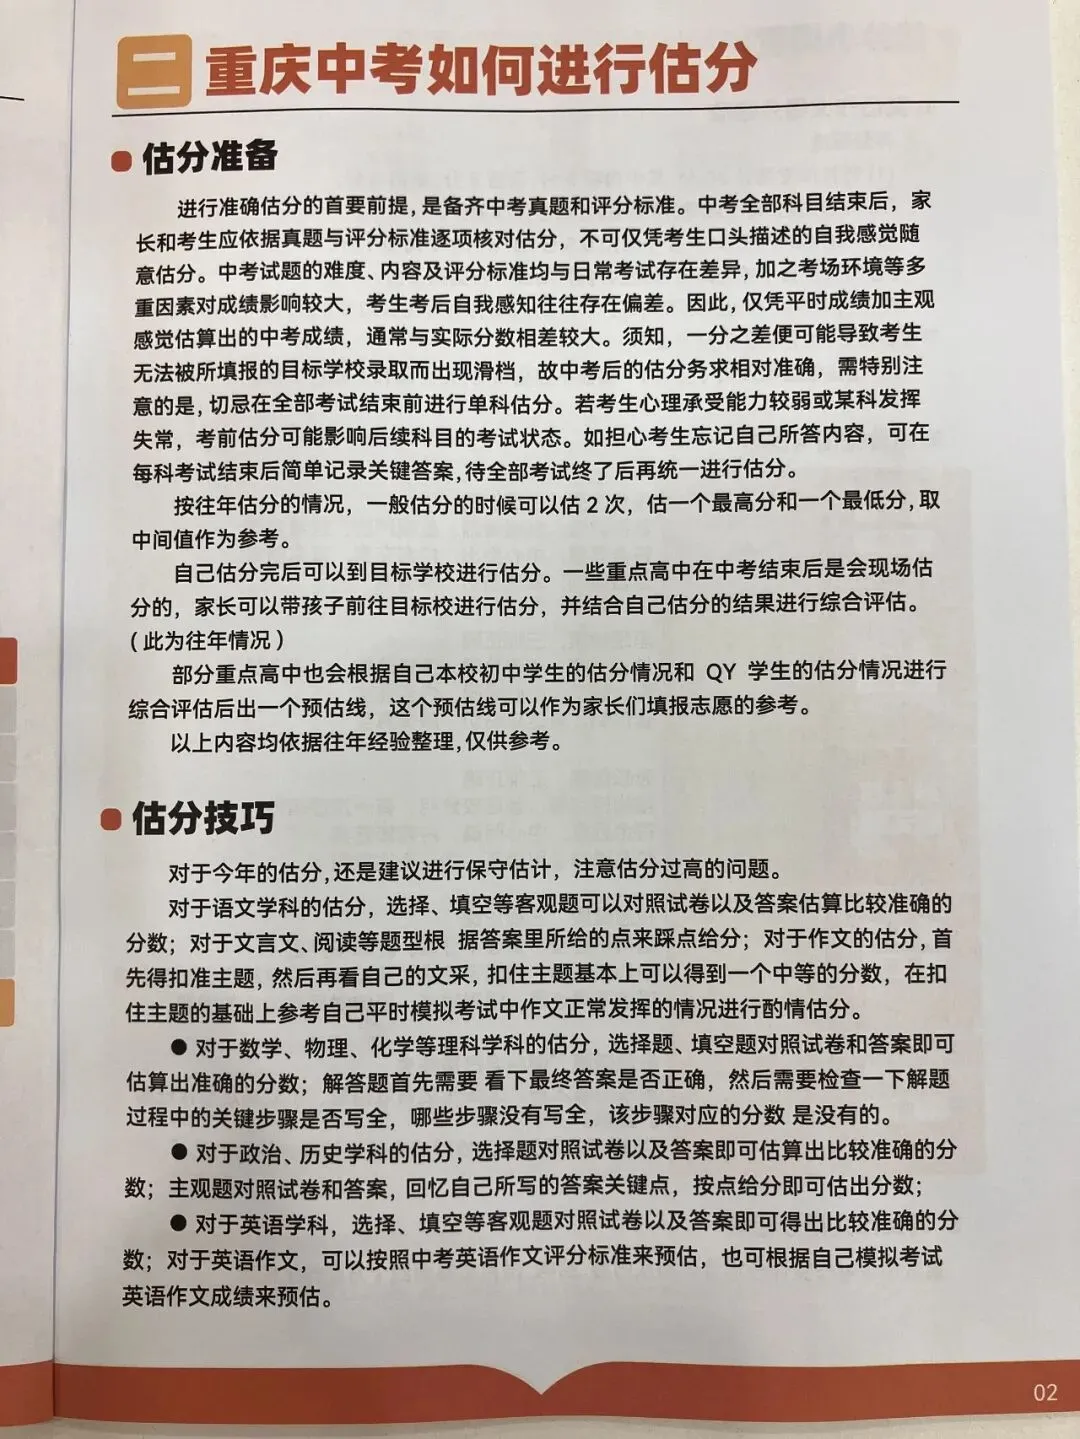 二 重庆中考如何进行估分
估分准备
进行准确估分的首要前提，是备齐中考真题和评分标准。中考全部科目结束后，家
长和考生应依据真题与评分标准逐项核对估分，不可仅凭考生口头描述的自我感觉随
意估分。中考试题的难度、内容及评分标准均与日常考试存在差异，加之考场环境等多
重因素对成绩影响较大，考生考后自我感知往往存在偏差。因此，仅凭平时成绩加主观
感觉估算出的中考成绩，通常与实际分数相差较大。须知，一分之差便可能导致考生
无法被所填报的目标学校录取而出现滑档，故中考后的估分务求相对准确，需特别注
意的是，切忌在全部考试结束前进行单科估分。若考生心理承受能力较弱或某科发挥
失常，考前估分可能影响后续科目的考试状态。如担心考生忘记自己所答内容，可在
每科考试结束后简单记录关键答案，待全部考试终了后再统一进行估分。
按往年估分的情况，一般估分的时候可以估 2 次，估一个最高分和一个最低分，取
中间值作为参考。
自己估分完后可以到目标学校进行估分。一些重点高中在中考结束后是会现场估
分的，家长可以带孩子前往目标校进行估分，并结合自己估分的结果进行综合评估。
（此为往年情况）
部分重点高中也会根据自己本校初中学生的估分情况和 QY 学生的估分情况进行
综合评估后出一个预估线，这个预估线可以作为家长们填报志愿的参考。
以上内容均依据往年经验整理，仅供参考。
估分技巧
对于今年的估分，还是建议进行保守估计，注意估分过高的问题。
对于语文学科的估分，选择、填空等客观题可以对照试卷以及答案估算比较准确的
分数；对于文言文、阅读等题型根 据答案里所给的点来踩点给分；对于作文的估分，首
先得扣准主题，然后再看自己的文采，扣住主题基本上可以得到一个中等的分数，在扣
住主题的基础上参考自己平时模拟考试中作文正常发挥的情况进行酌情估分。
● 对于数学、物理、化学等理科学科的估分，选择题、填空题对照试卷和答案即可
估算出准确的分数；解答题首先需要 看下最终答案是否正确，然后需要检查一下解题
过程中的关键步骤是否写全，哪些步骤没有写全，该步骤对应的分数 是没有的。
● 对于政治、历史学科的估分，选择题对照试卷以及答案即可估算出比较准确的分
数；主观题对照试卷和答案，回忆自己所写的答案关键点，按点给分即可估出分数；
● 对于英语学科，选择、填空等客观题对照试卷以及答案即可得出比较准确的分
数；对于英语作文，可以按照中考英语作文评分标准来预估，也可根据自己模拟考试
英语作文成绩来预估。
02